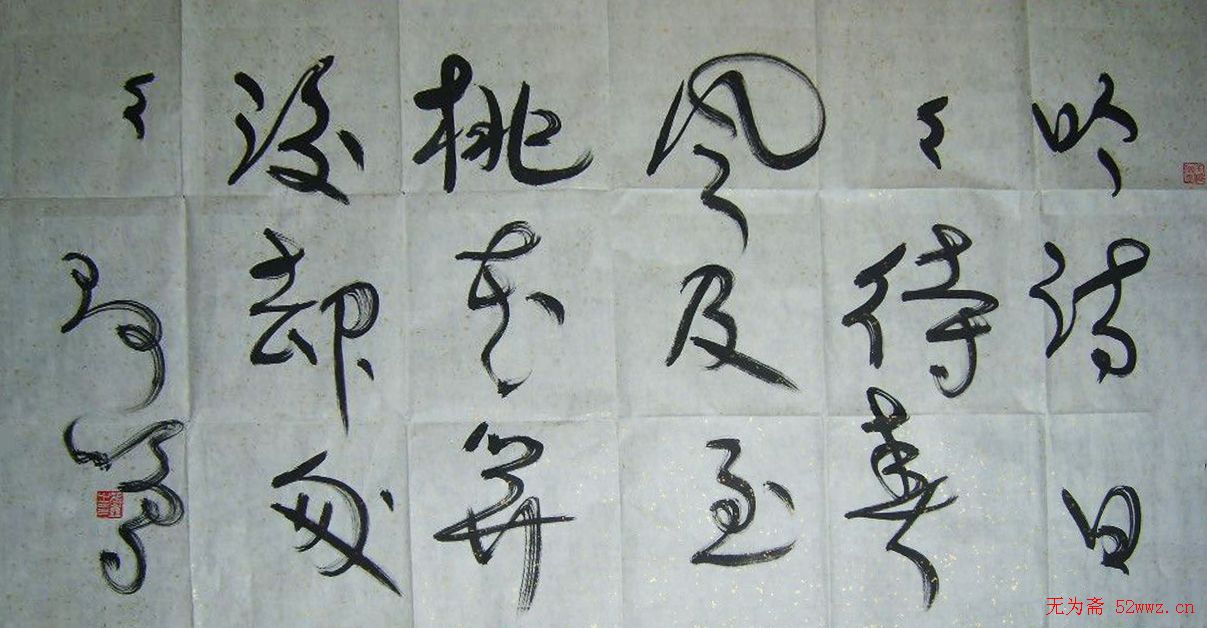 吟詩日
々待春
風及至
桃花開
後却匆
々
无为斋 52wwz.cn